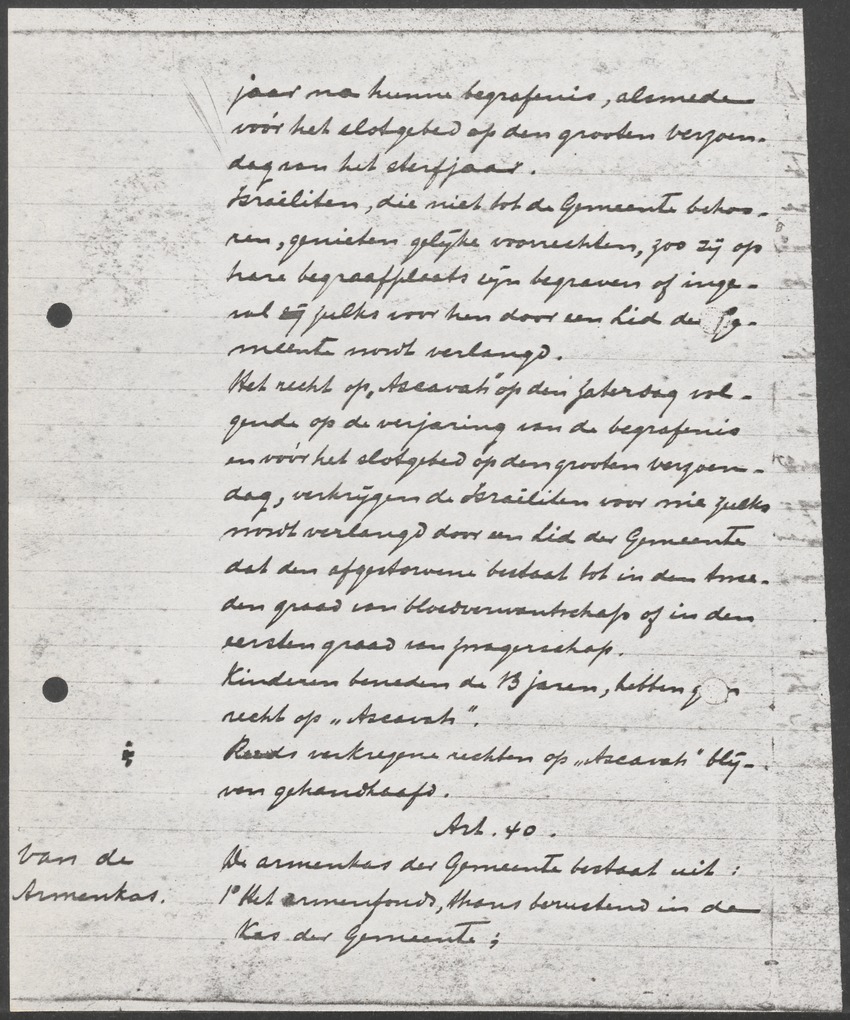 jaar na hunne begrafenis, alsmede
vóór het slotgebed op den grooten verzoen-
dag van het sterfjaar.
Israëliten, die niet tot de Gemeente behoo-
ren, genieten gelijke voorrechten, zoo zij op
hare begraafplaats zijn begraven of inge-
val zulks voor hen door een Lid der Ge-
meente wordt verlangd.
Het recht op „Ascavah" op den Zaterdag vol-
gende op de verjaring van de begrafenis
en vóór het slotgebed op den grooten verzoen-
dag, verkrijgen de Israëliten voor wie zulks
wordt verlangd door een Lid der Gemeente
dat den afgestorvene bestaat tot in den twee-
den graad van bloedverwantschap of in den
eersten graad van zwagerschap.
Kinderen beneden de 13 jaren, hebben geen
recht op „Ascavah".
Reeds verkregene rechten op „Ascavah" blij-
ven gehandhaafd.
Art. 40.
van de
Armenkas.
De armenkas der Gemeente bestaat uit:
1° Het armenfonds, thans berustend in de
Kas der Gemeente;